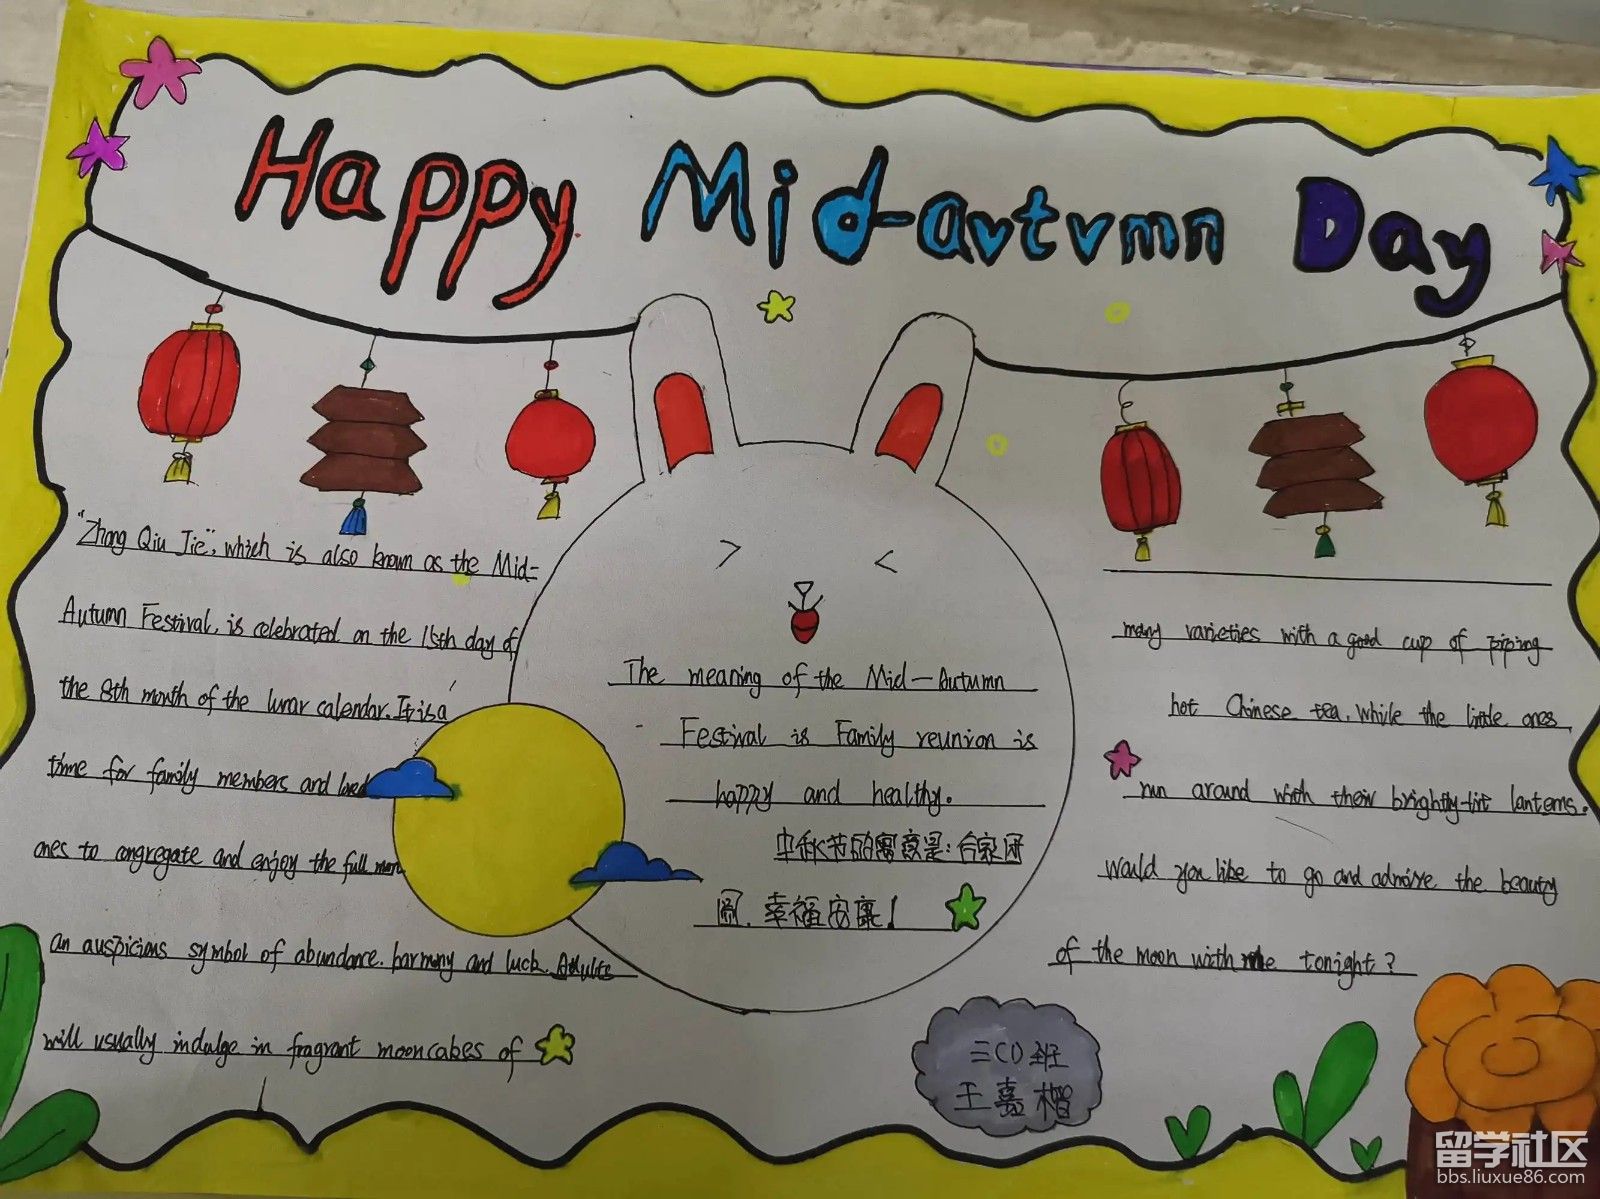 Happy Mid-autumn Day
"Zhong Qiu Jie", which is also known as the Mid-
Autumn Festival, is celebrated on the 15th day of
the 8th month of the lunar calendar. It is a
time for family members and loved
ones to congregate and enjoy the full moon
an auspicious symbol of abundance. harmony and luck. Adults
will usually indulge in fragrant mooncakes of
The meaning of the Mid-Autumn
Festival is Family reunion is
happy and healthy.
中秋节的寓意是:合家团
圆.幸福安康!
many varieties with a good cup of piping
hot Chinese tea, while the little ones
run around with their brightly-lit lanterns.
would you like to go and admire the beauty
of the moon with me tonight?
班
王嘉楷
留学社区
bbs.liuxue86.com